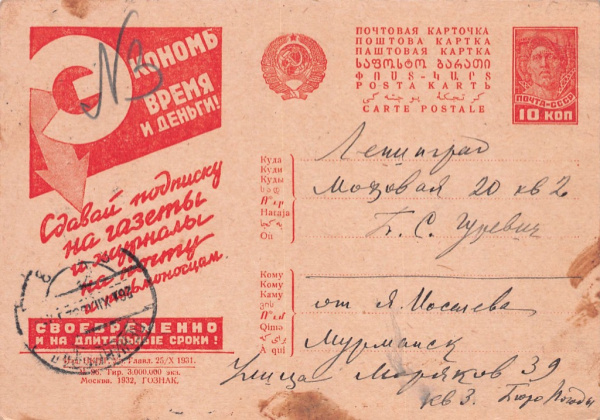 N3
Экономь
время
и деньги!
Сдавай подписку
на газеты
и журналы
на почту
и письмоносцам
СВОЕВРЕМЕННО
И НА ДЛИТЕЛЬНЫЕ СРОКИ!
Главл. 25/X 1931.
Тир. 3.000.000 экз.
Москва, 1932, ГОЗНАК.
ПОЧТОВАЯ КАРТОЧКА
ПОШТОВА КАРТКА
ПАШТОВАЯ КАРТКА
ՓՈՍՏ-ԿԱՐՏ
POSTA KARTЬ
CARTE POSTALE
ПОЧТА-СССР
10 КОП
Куда
Куди
Куды
Haraja
Où
Ленинград
Моховая 20 кв 2
Б. С. Гуревич
Кому
Кому
Каму
Qimə
A qui
от Я.
Мурманск
Улица Моряков 39
кв 3. Бюро Погоды